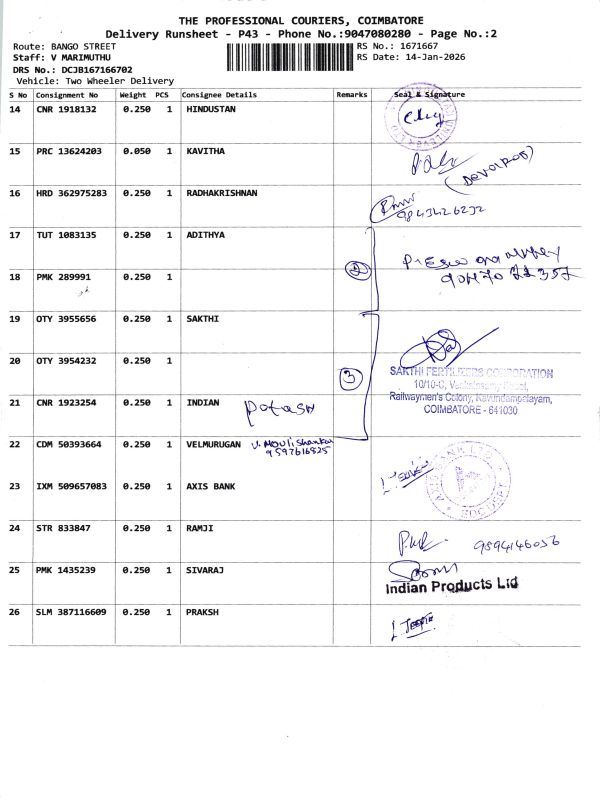 THE PROFESSIONAL COURIERS, COIMBATORE
Delivery Runsheet - P43 - Phone No.:9047080280 - Page No.:2
Route: BANGO STREET
RS No.: 1671667
Staff: V MARIMUTHU
RS Date: 14-Jan-2026
DRS No.: DCJB167166702
Vehicle: Two Wheeler Delivery
S No Consignment No Weight PCS Consignee Details Remarks Seal & Signature
14 CNR 1918132 0.250 1 HINDUSTAN
15 PRC 13624203 0.050 1 KAVITHA
16 HRD 362975283 0.250 1 RADHAKRISHNAN
9843426232
17 TUT 1083135 0.250 1 ADITHYA
2
18 PMK 289991 0.250 1
19 OTY 3955656 0.250 1 SAKTHI
20 OTY 3954232 0.250 1
3
SAKTHI FERTILIZERS CORPORATION
10/10-C, Venkatasamy Street,
Railwaymen's Colony, Kavundampalayam,
COIMBATORE - 641030
21 CNR 1923254 0.250 1 INDIAN Potash
22 CDM 50393664 0.250 1 VELMURUGAN V. Mouli Shankar
9597616825
23 IXM 509657083 0.250 1 AXIS BANK
24 STR 833847 0.250 1 RAMJI
9894146056
25 PMK 1435239 0.250 1 SIVARAJ
Indian Products Ltd
26 SLM 387116609 0.250 1 PRAKSH